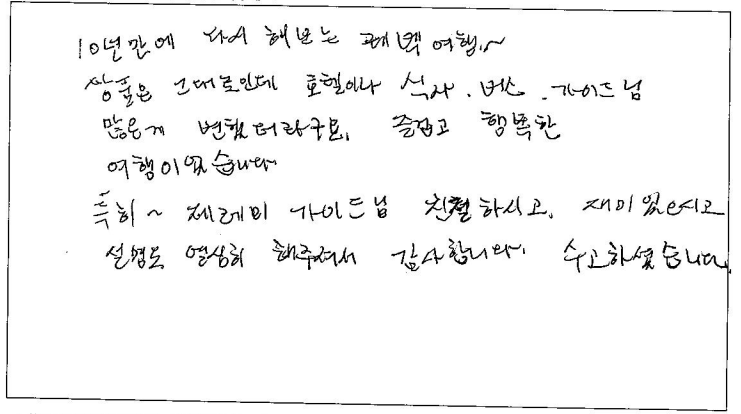 10년만에 다시 해보는 패키지여행~
상품은 그대로인데 호텔이나 식사. 버스. 가이드님
많은게 변했더라구요. 즐겁고 행복한
여행이었습니다
특히~ 제레미 가이드님 친절하시고, 재미있으시고
설명도 열심히 해주셔서 감사합니다. 수고하셨습니다.